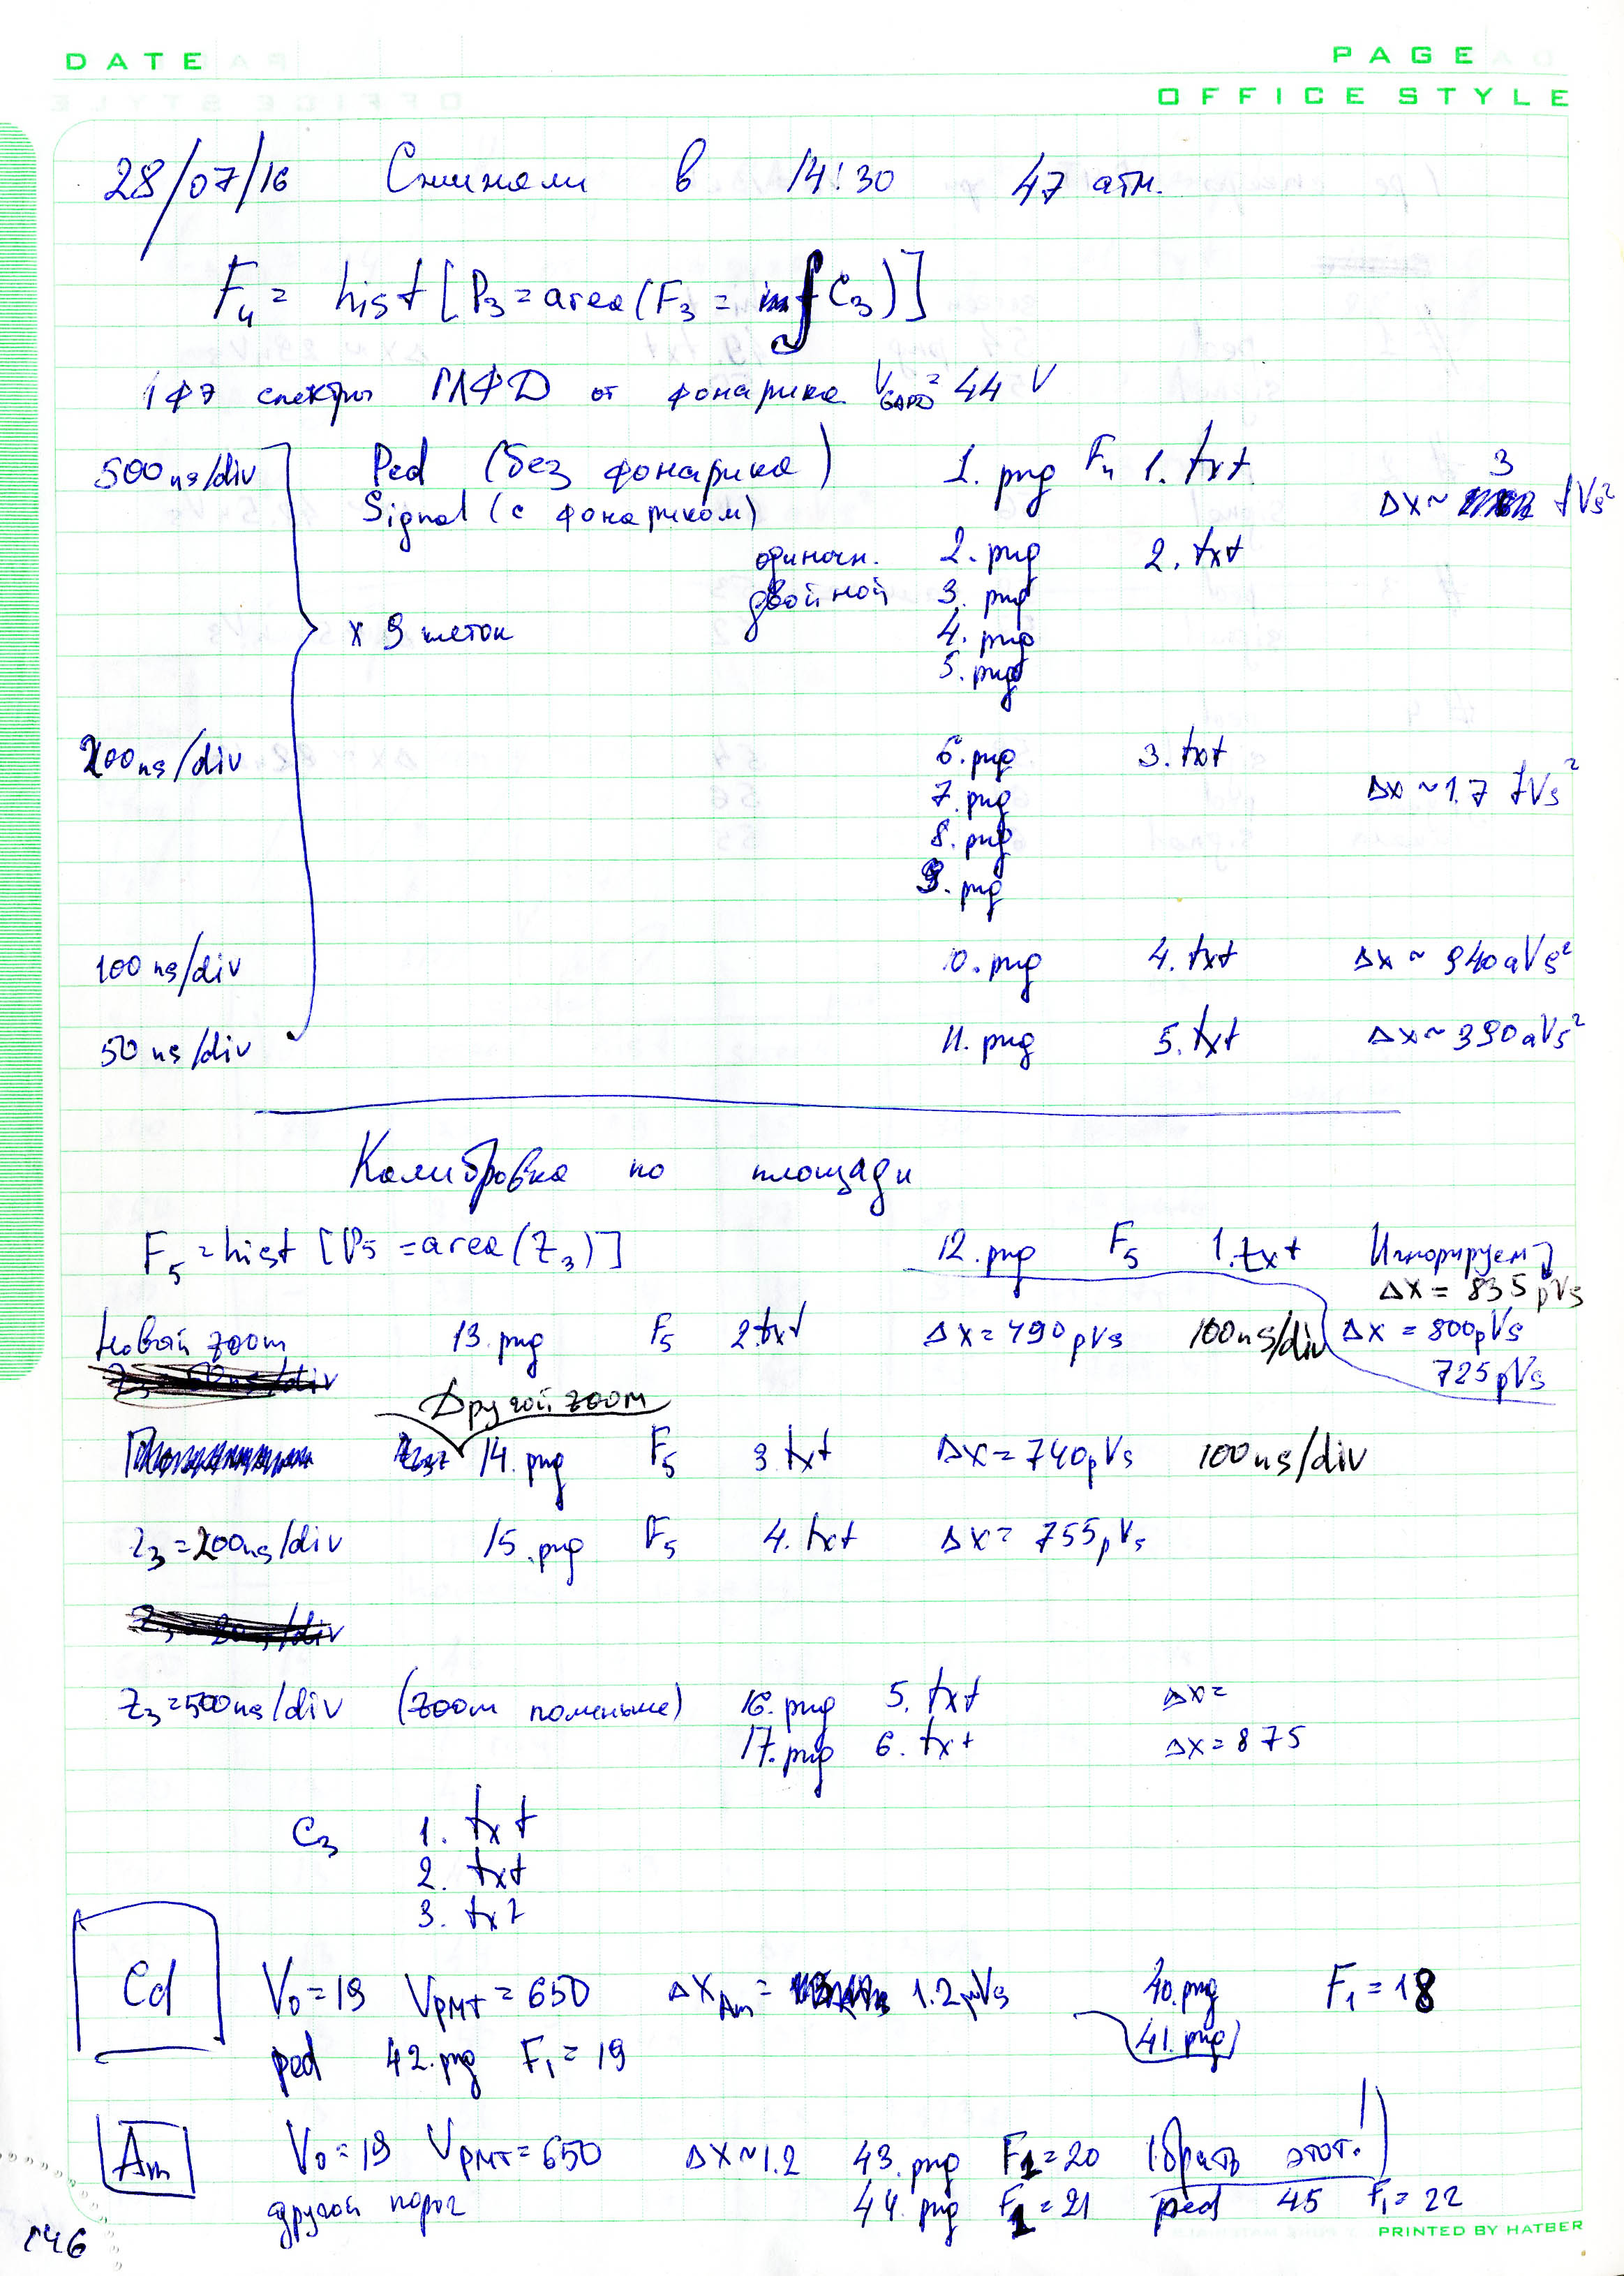 DATE
PAGE
OFFICE STYLE
28/07/16 Сжижали в 14:30 47 атм.
F₄ = hist [P₃ = area (F₃ = ∫ C₃)]
1ФЭ спектры ГЛФД от фонарика V_GAPD = 44 V
500 ns/div Ped (без фонарика) 1. png F₄ 1. txt 3
Signal (с фонариком) ΔX ~ fVs²
одиночн. 2. png 2. txt
двойной 3. png
x 9 меток 4. png
5. png
200 ns/div 6. png 3. txt
7. png ΔX ~ 1.7 fVs²
8. png
9. png
100 ns/div 10. png 4. txt ΔX ~ 940 aVs²
50 ns/div 11. png 5. txt ΔX ~ 390 aVs²
Калибровка по площади
F₅ = hist [P₅ = area (Z₃)] 12. png F₅ 1. txt Игнорируем
ΔX = 835 pVs
Новый zoom 13. png F₅ 2. txt ΔX = 490 pVs 100 ns/div ΔX = 800 pVs
725 pVs
Другой zoom
14. png F₅ 3. txt ΔX = 740 pVs 100 ns/div
Z₃ = 200 ns/div 15. png F₅ 4. txt ΔX = 755 pVs
Z₃ = 500 ns/div (zoom поменьше) 16. png 5. txt ΔX =
17. png 6. txt ΔX = 875
C₃ 1. txt
2. txt
3. txt
Cd V₀ = 19 V_PMT = 650 ΔX_Am = 1.2 Vs 40. png F₁ = 18
41. png
ped 42. png F₁ = 19
Am V₀ = 19 V_PMT = 650 ΔX ~ 1.2 43. png F₁ = 20 (брать этот!)
другой порог 44. png F₁ = 21 ped 45 F₁ = 22
146
PRINTED BY HATBER